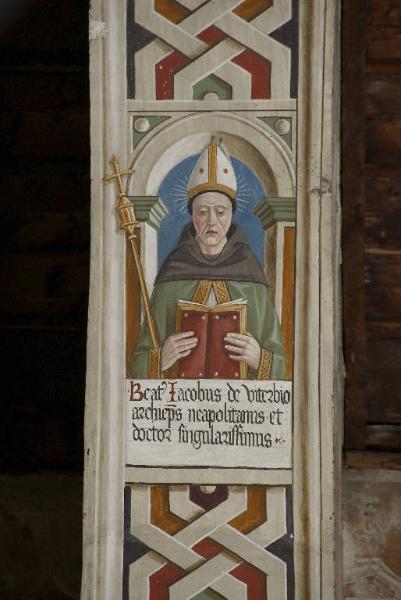 Beat⁹ Iacobus de viterbio
archiep̄s neapolitanus et
doctor singularissimus